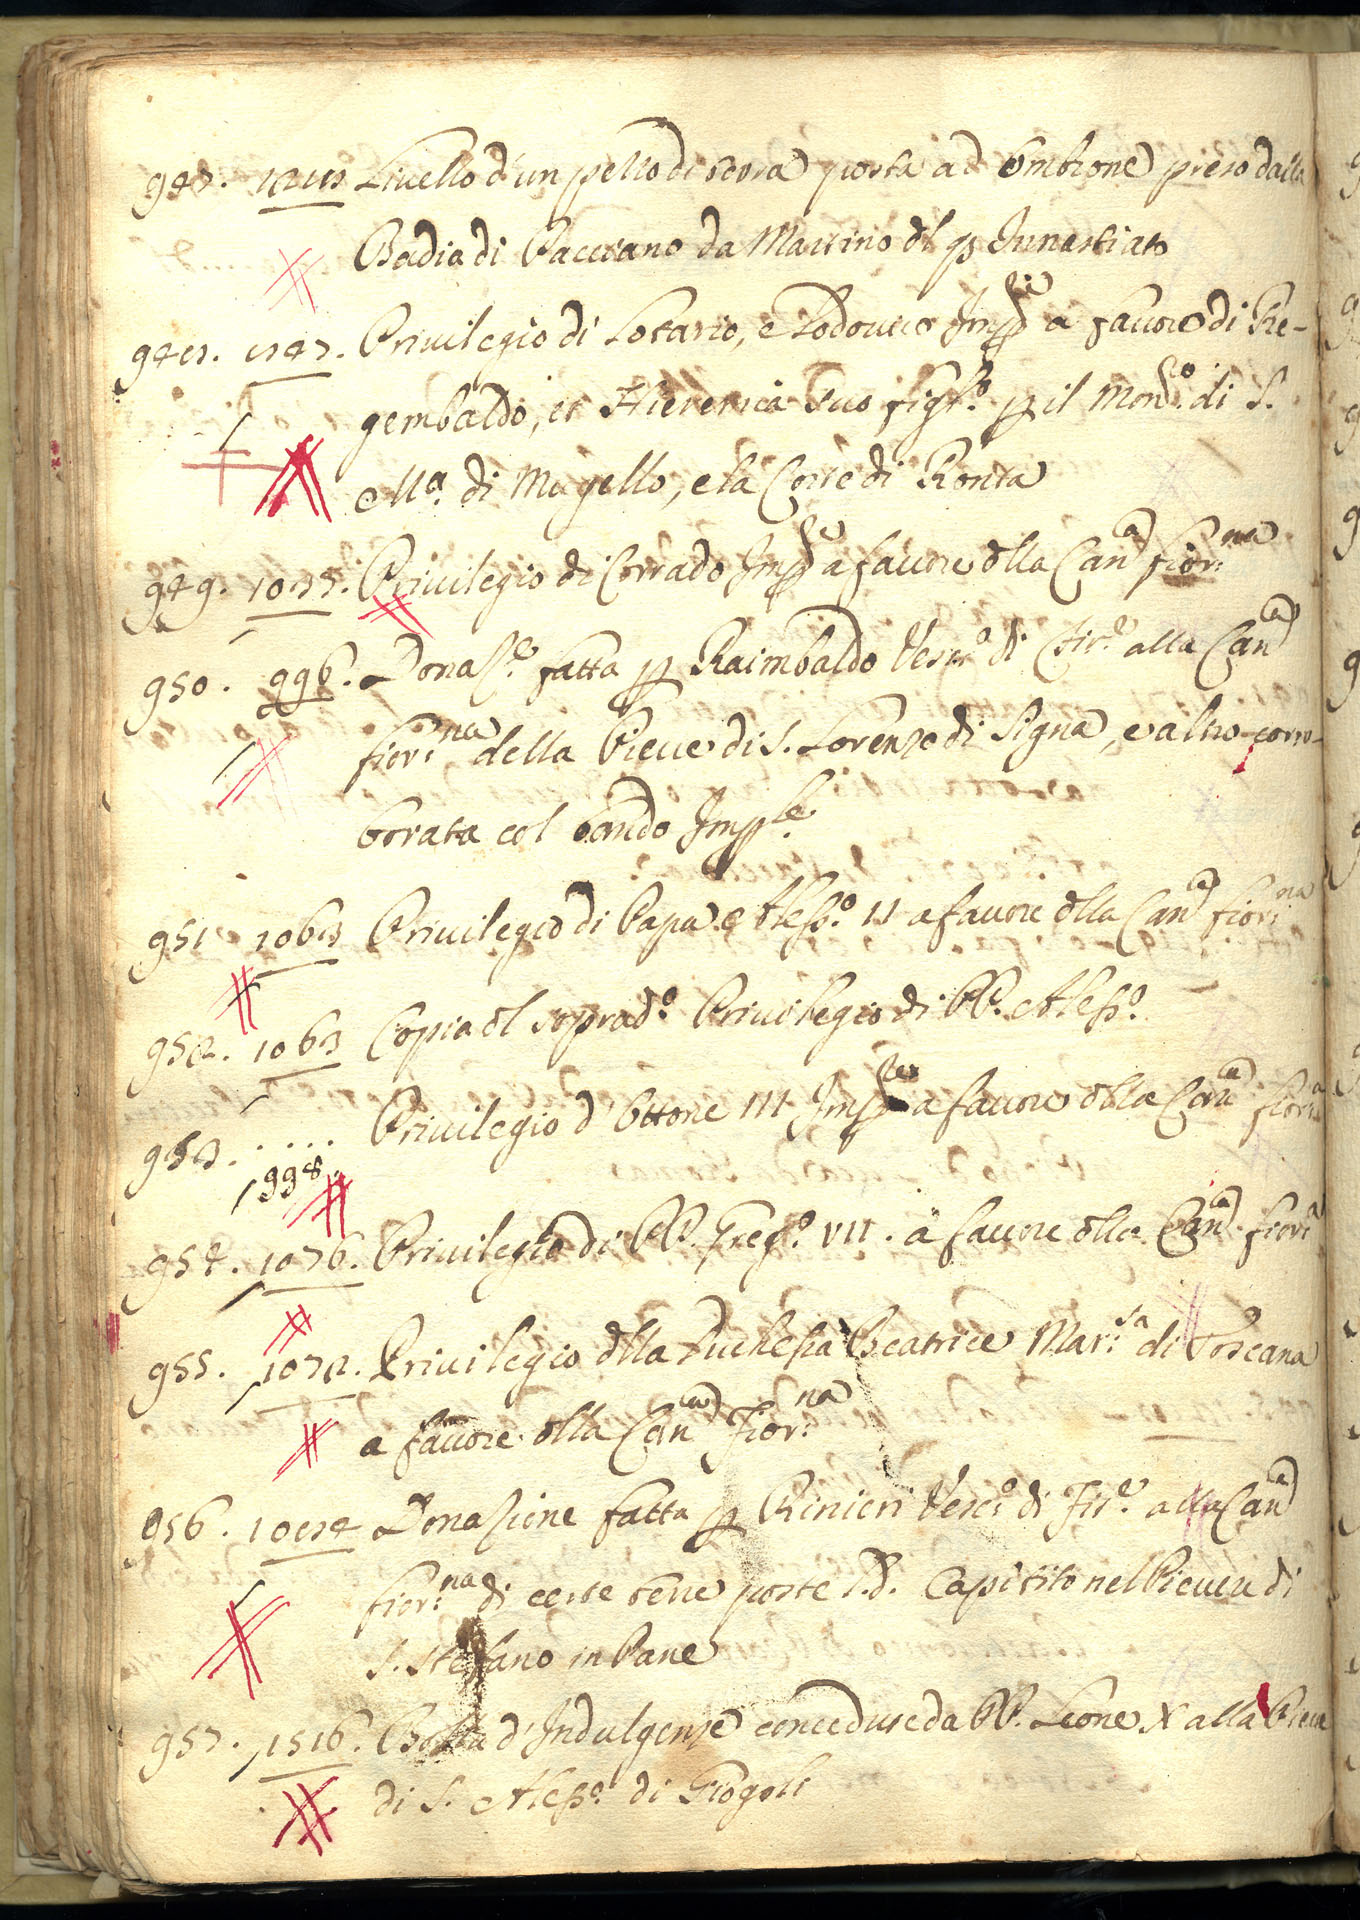 947. Livello d'un pezzo di terra posta ad Ombrone preso dalla
Badia di Pacciano da Martino dl q
948. Privilegio di Lotario, e Lodovico Imp.ri a favore di Re-
gembaldo, et suo figl.o p il Mon.o di S.
Ma. di Mugello, e la Corte di Ronta
949. 1035. Privilegio di Corrado Imp.re a favore dlla Can.a fior.na
950. 996. Donaz.e fatta p Raimbaldo Vesc.o di Fir.e alla Can.a
fior.na della Pieve di S. Lorenzo di Signa, e altro corro-
borata col bando Imp.le
951 1063 Privilegio di Papa Aless.o II a favore dlla Can.a fior.na
952. 1063 Copia dl soprad.o Privilegio di PP. Aless.o
953. ..... Privilegio d'Ottone III Imp.re a favore dlla Can.a fior.a
998.
954. 1076. Privilegio di PP. Greg.o VII. a favore dlla Can.a fior.a
955. 1072. Privilegio dlla Duchessa Beatrice Mar.sa di Toscana
a favore dlla Can.a Fior.na
956. Donazione fatta p Rinieri Vesc.o di Fir.e alla Can.a
fior.na di certe terre poste l.d. Capitito nel Piviere di
S. Stefano in Pane
957. 1516. Bolla d'Indulgenze concedute da PP. Leone X alla Pieve
di S. Aless.o di Giogoli